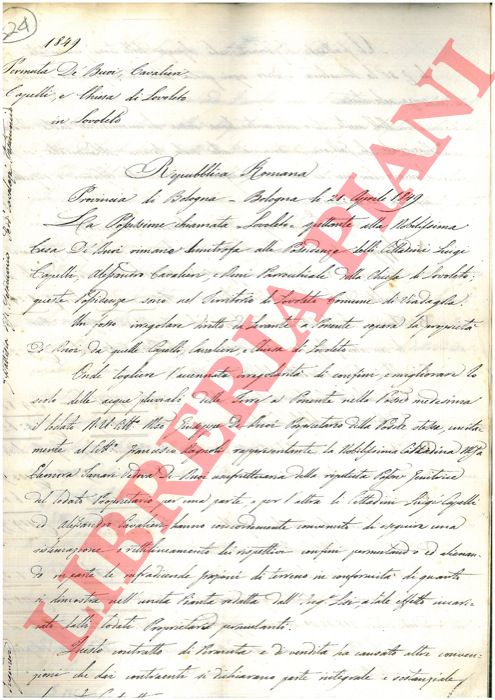 24
1849
Permuta De' Buoi, Cavalieri,
Capelli, e Chiesa di Lovoleto
in Lovoleto
Repubblica Romana
Provincia di Bologna - Bologna li 21 Aprile 1849
La Possessione chiamata Lovoleto spettante alla Nobilissima
Casa De' Buoi rimane limitrofa alle Possidenze delli Cittadini Luigi
Capelli, Alessandro Cavalieri, e Beni Parrocchiali della Chiesa di Lovoleto;
queste Possidenze sono nel Territorio di Lovoleto Comune di Viadagola
Un fosso irregolare diretto da Levante a Ponente separa la proprietà
De' Buoi, da quelle Capelli, Cavalieri e Chiesa di Lovoleto.
Onde togliere l'accennata irregolarità di confini e migliorare lo
scolo delle acque pluviali delle Terre a Ponente nella Possne medesima
il lodato Proprietario della stessa, unita-
mente al Francesco rappresentante la Nobilissima Cittadina
Eleonora Vedova De' Buoi usufruttuaria della ripetuta Possne Genitrice
del lodato Proprietario per una parte e per l'altra li Cittadini Luigi Capelli
ed Alessandro Cavalieri, hanno concordemente convenuto di eseguire una
sistemazione e rettificamento dei rispettivi confini permutando ed alienan-
do in parte le infradicende porzioni di terreno in conformità di quanto
si dimostra nell' unita Pianta redatta dall' Ingre a tale effetto incari-
cato dalli lodati Proprietari permutanti.
Questo contratto di Permuta e di vendita ha causato altre conven-
zioni che dai contraenti si dichiarano parte integrale e sostanziale
LIBRERIA PIANI